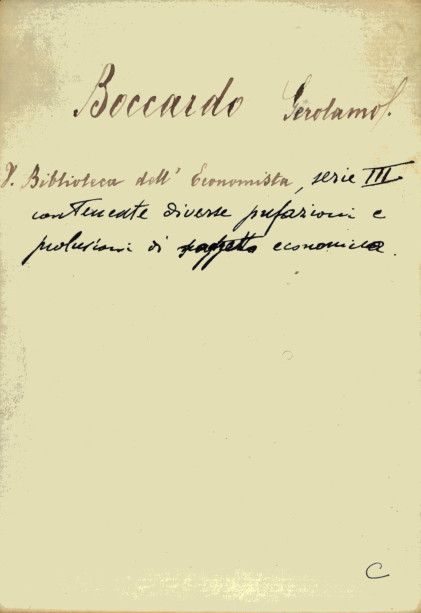 Boccardo Gerolamo.
V. Biblioteca dell' Economista, serie III
contenente diverse prefazioni e
prolusioni di economica.
C